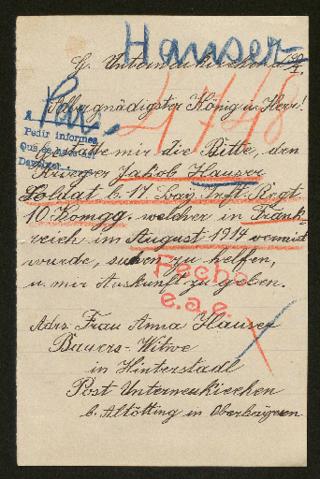 Hauser
G. Unterneukirchen d. 20/4.
Allergnädigster König u. Herr!
24748
Par.
Pedir informes
Gestatte mir die Bitte, den
Krieger Jakob Hauser
Soldat b. 17 bay. Inft. Regt
10 Komgg. welcher in Frank
reich im August 1914 vermißt
wurde, suchen zu helfen,
u. mir Auskunft zu geben.
Fecho
e.a.e.
Adrs. Frau Anna Hauser
Bauers-Witwe
in Hinterstadl
Post Unterneukirchen
b. Altötting in Oberbayern